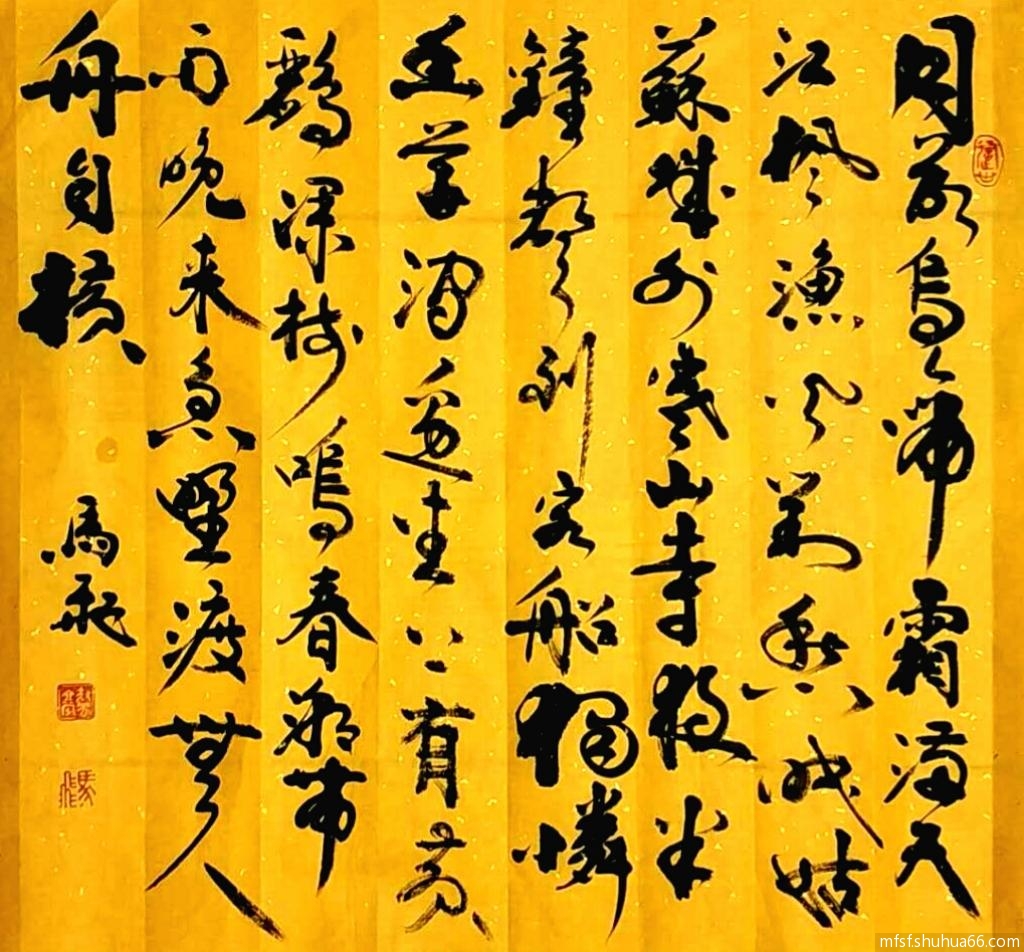 月落烏啼霜滿天
江楓漁火對愁眠姑
蘇城外寒山寺夜半
鐘聲到客船獨憐
幽草澗邊生上有黃
鸝深樹鳴春潮帶
雨晚來急野渡無人
舟自橫
馬飛
mfsf.shuhua66.com